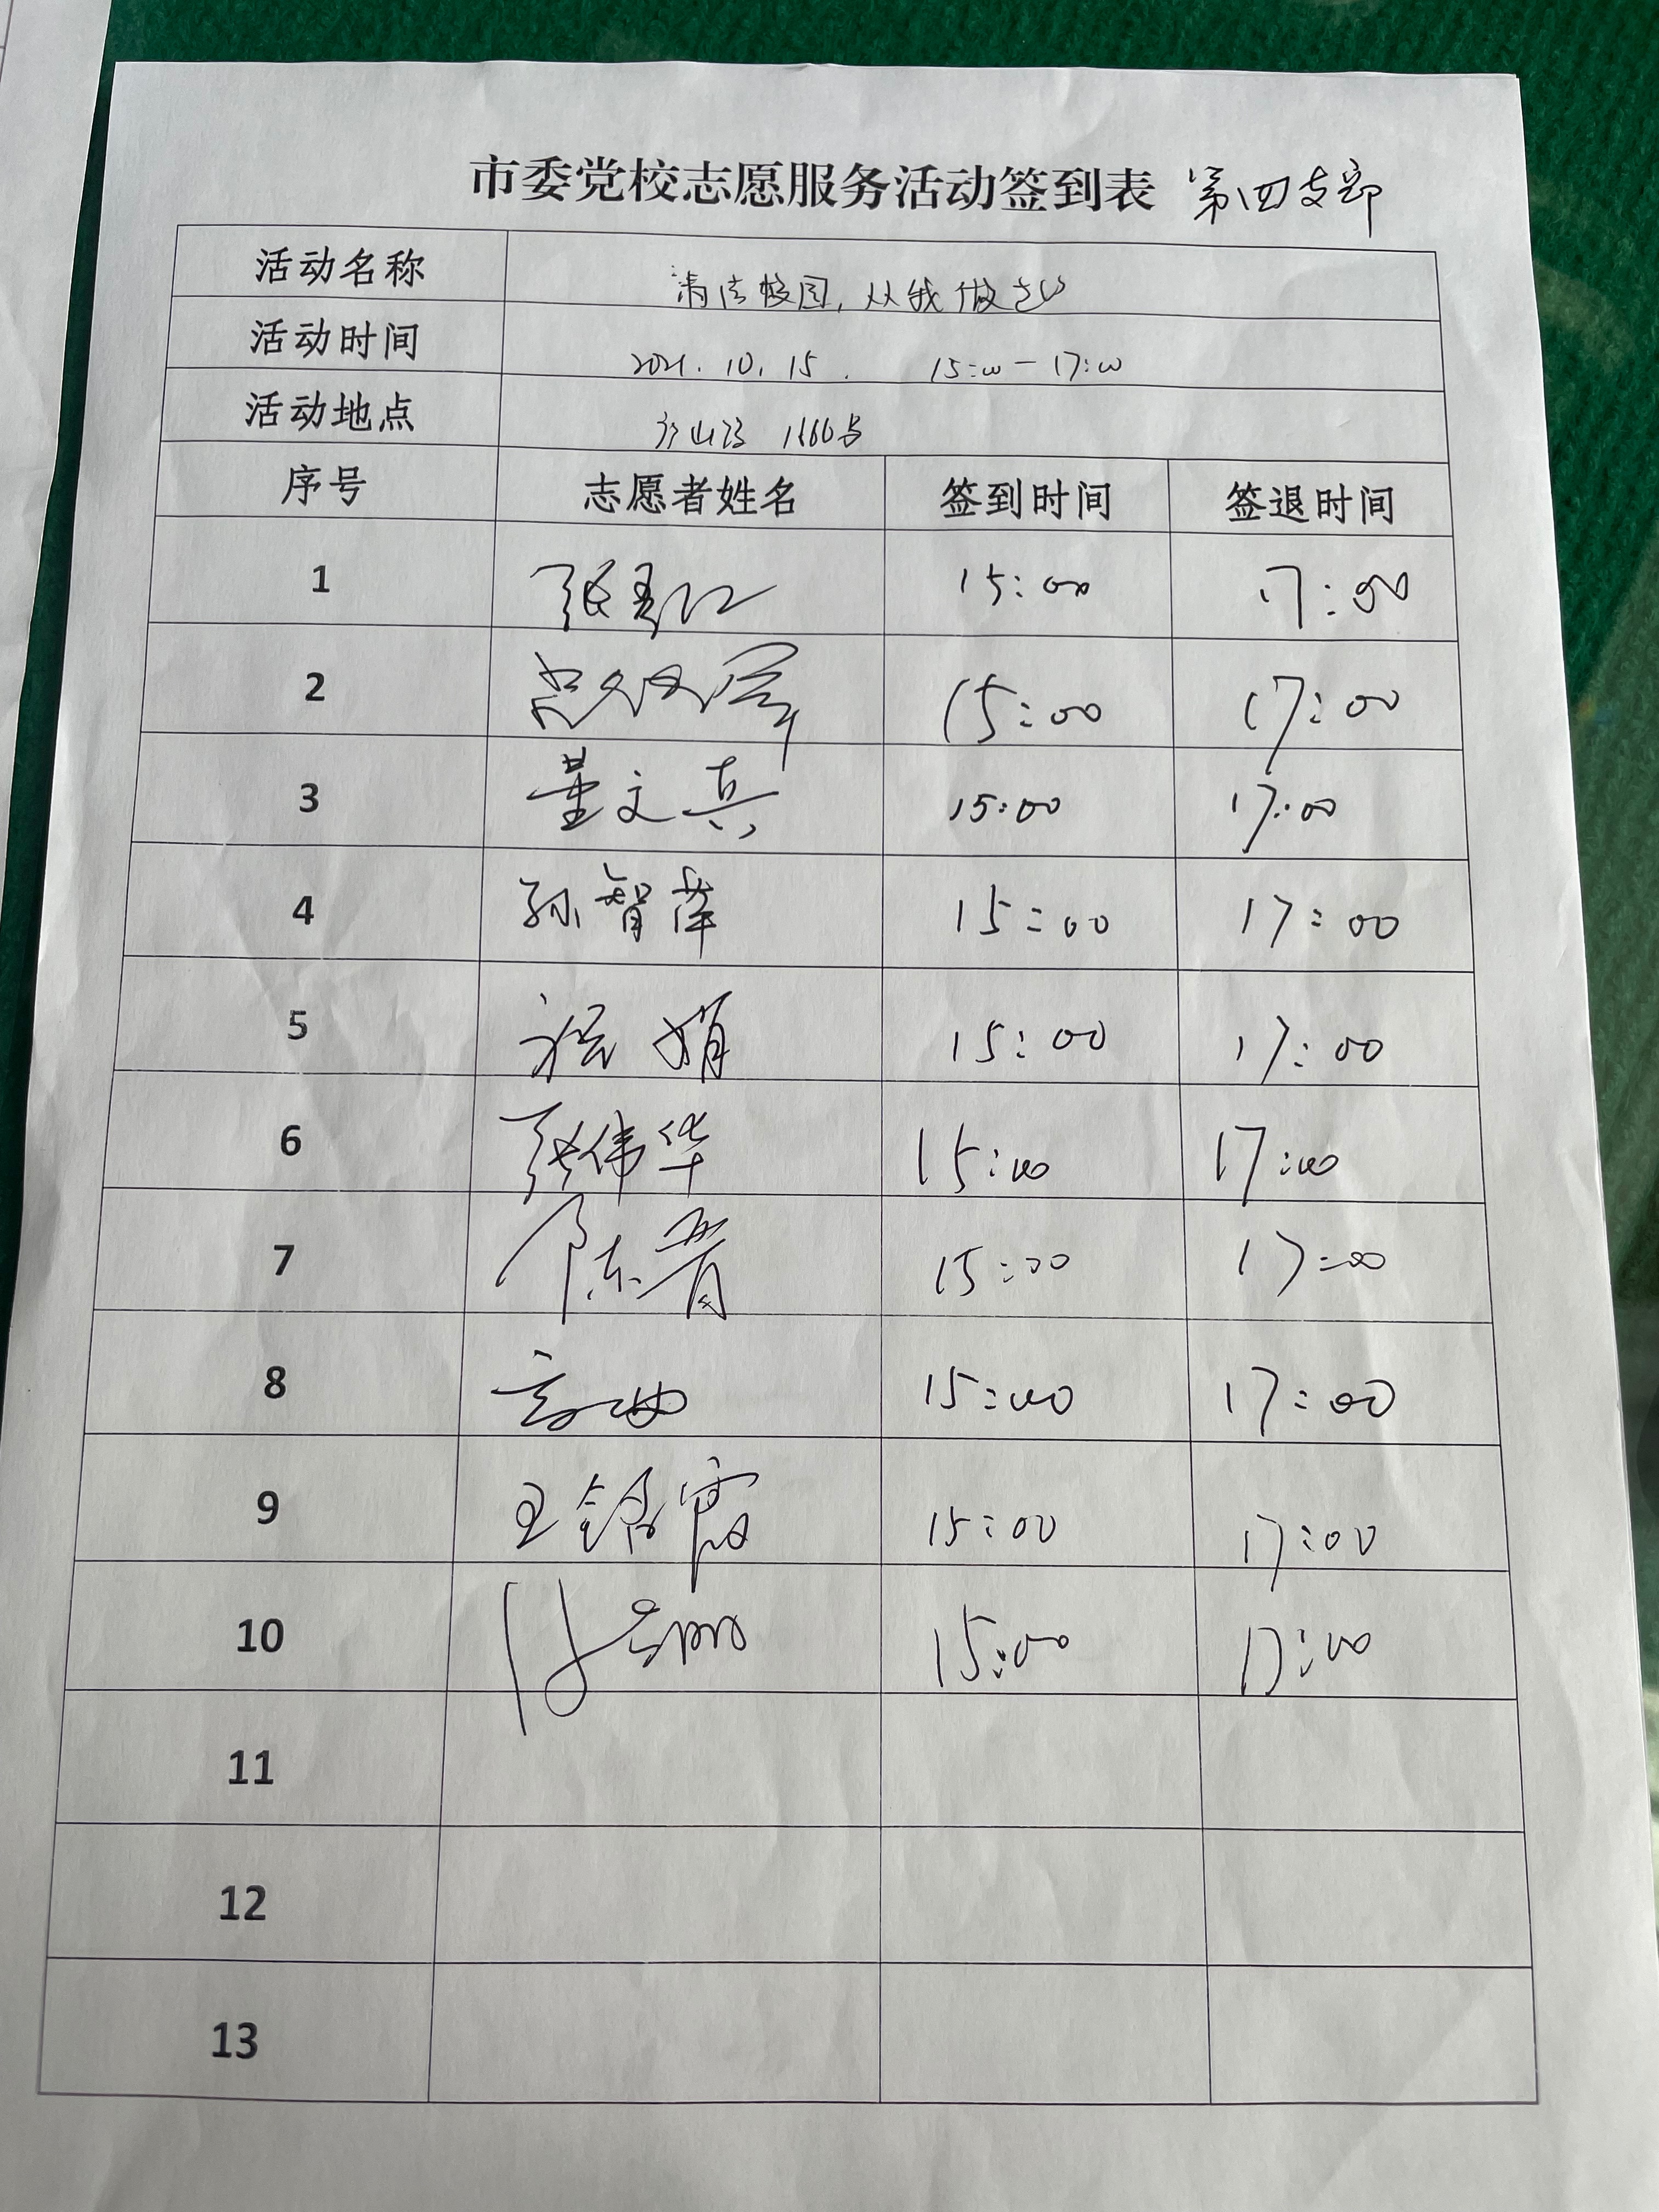 市委党校志愿服务活动签到表 第四支部
活动名称 清洁校园，从我做起
活动时间 2021.10.15. 15:00-17:00
活动地点 1666号
序号 志愿者姓名 签到时间 签退时间
1 15:00 17:00
2 15:00 17:00
3 董文真 15:00 17:00
4 孙智萍 15:00 17:00
5 程娟 15:00 17:00
6 张伟华 15:00 17:00
7 陈青 15:00 17:00
8 15:00 17:00
9 王锦霞 15:00 17:00
10 15:00 17:00
11
12
13